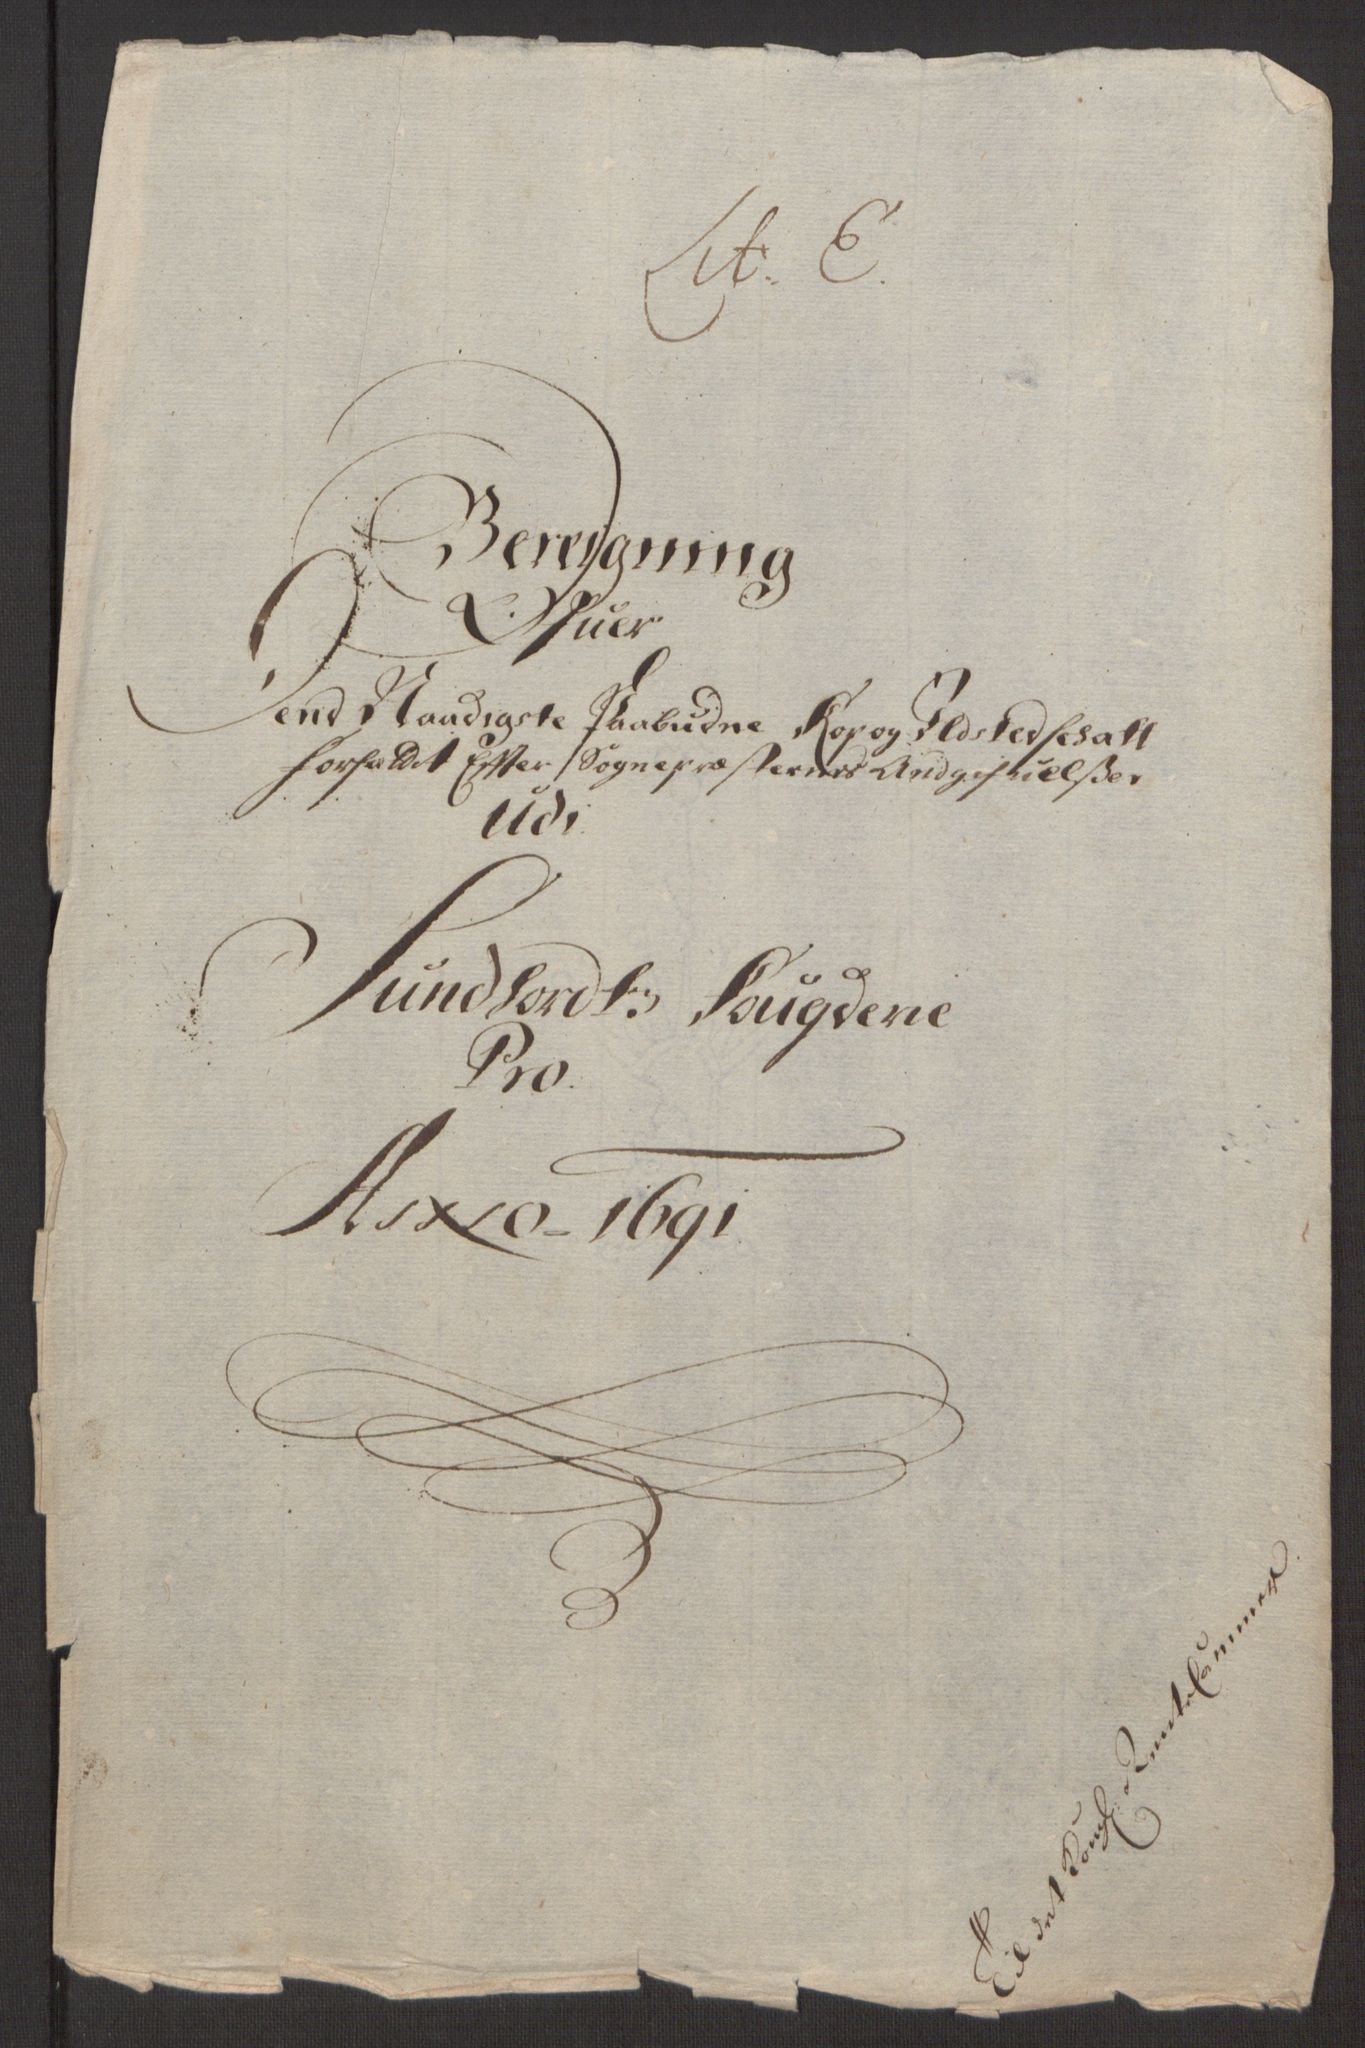 Lit. E.
Beregning
Ofuer
Dend Naadigste Paabudne Kop og Ildstedschatt
forfattet Efter Sognepræsternes Andgifuelsßer
Udi
Sundhordl: Fougderie
Pro.
Anno 1691
Til det Kongl: Rentekammer